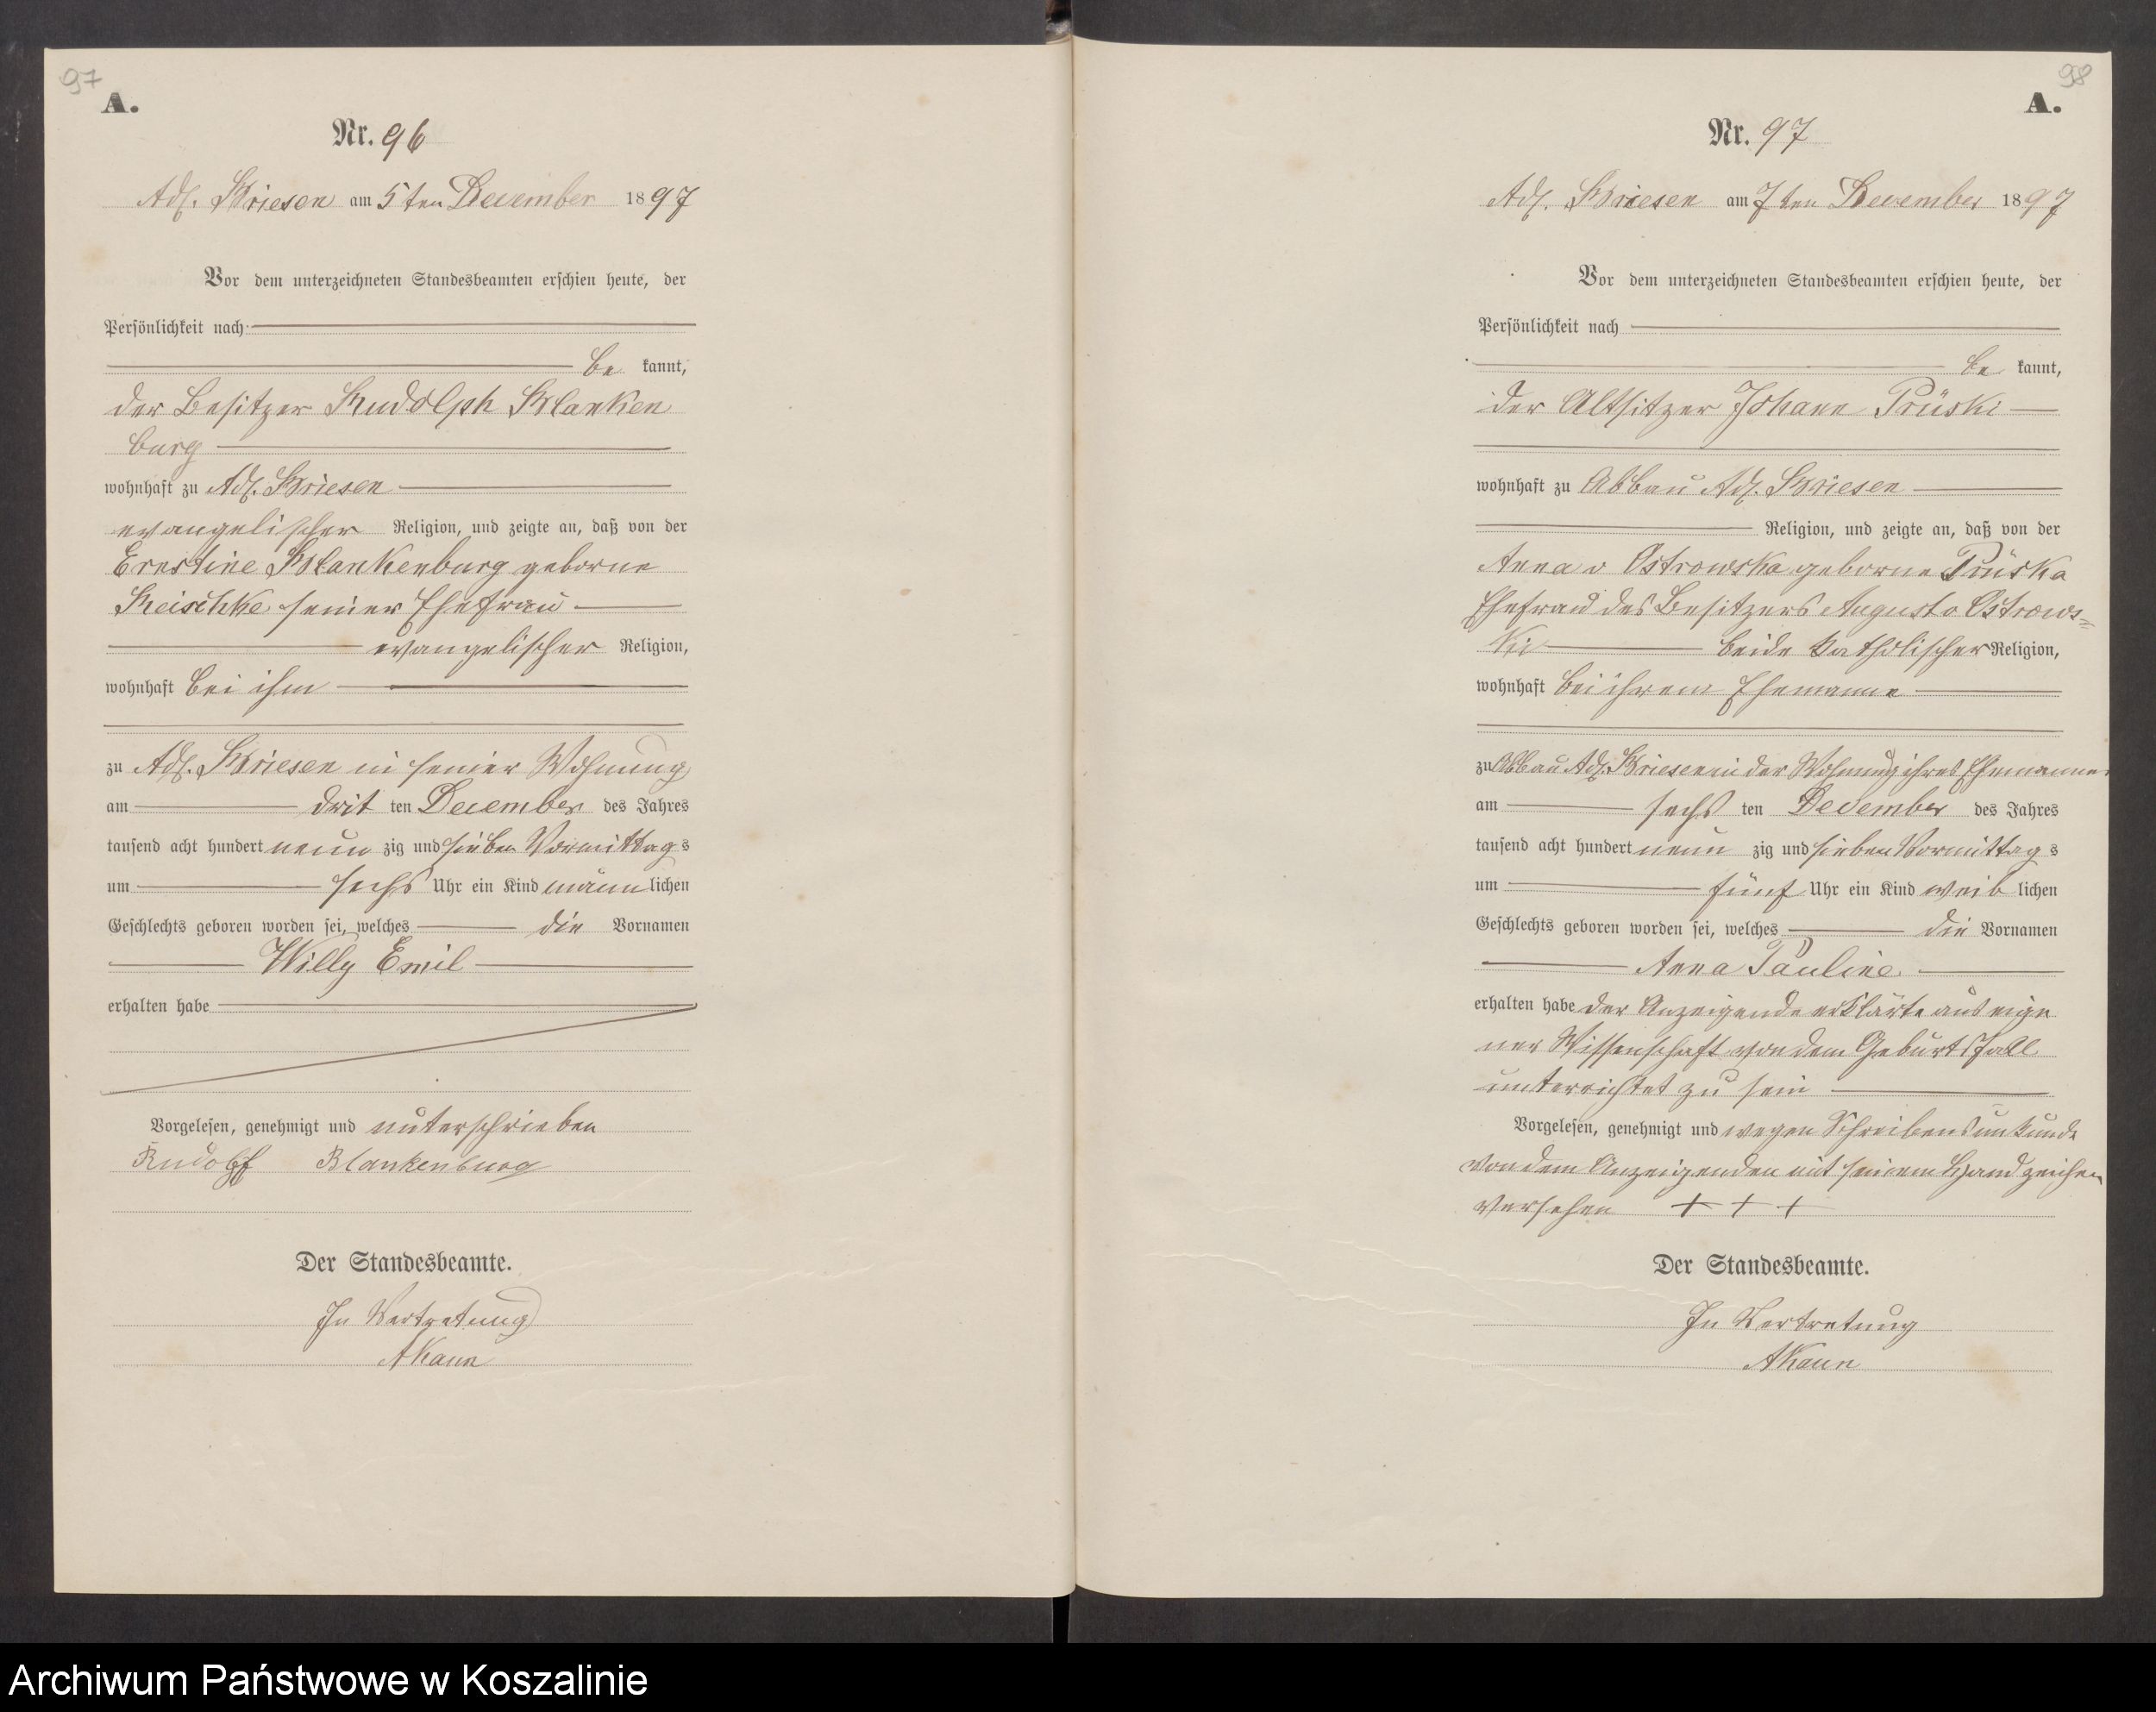 97
A.
Nr. 96
Adl. Briesen am 5ten December 1897
Vor dem unterzeichneten Standesbeamten erschien heute, der
Persönlichkeit nach
be kannt,
der Besitzer Rudolph Blanken
burg
wohnhaft zu Adl. Briesen
evangelischer Religion, und zeigte an, daß von der
Ernstine Blankenburg geborne
seiner Ehefrau
evangelischer Religion,
wohnhaft bei ihm
zu Adl. Briesen in seiner Wohnung
am drit ten December des Jahres
tausend acht hundert neun zig und sieben Vormittag s
um sechs Uhr ein Kind männ lichen
Geschlechts geboren worden sei, welches die Vornamen
Willy Emil
erhalten habe
Vorgelesen, genehmigt und unterschrieben
Rudolf Blankenburg
Der Standesbeamte.
In Vertretung
98
A.
Nr. 97
Adl. Briesen am 7ten December 1897
Vor dem unterzeichneten Standesbeamten erschien heute, der
Persönlichkeit nach
be kannt,
der Altsitzer Johann Prüski
wohnhaft zu Abbau Adl. Briesen
Religion, und zeigte an, daß von der
Anna v Ostrowska geborne Prüska
Ehefrau des Besitzers August v Ostrows=
ki beide katholischer Religion,
wohnhaft bei ihrem Ehemanne
zu Abbau Adl. Briesen in der Wohnung ihres Ehemannes
am sechs ten December des Jahres
tausend acht hundert neun zig und sieben Vormittag s
um fünf Uhr ein Kind weib lichen
Geschlechts geboren worden sei, welches die Vornamen
Anna Pauline
erhalten habe der Anzeigende erklärte aus eige
ner Wissenschaft von dem Geburtsfall
unterrichtet zu sein
Vorgelesen, genehmigt und wegen Schreibensunkunde
von dem Anzeigenden mit seinem Handzeichen
versehen + + +
Der Standesbeamte.
In Vertretung
Archiwum Państwowe w Koszalinie